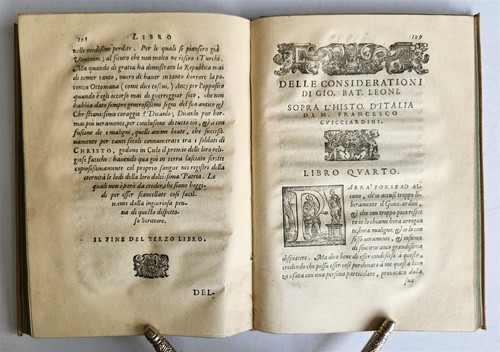 108
LIBRO
nelle medesime perdite. Per le quali se piansero già i
Venetiani; al sicuro che non molto ne risero i Turchi.
Ma quando di gratia ha dimostrato la Republica mai
di temer tanto, ouero di hauer in tanto horrore la po-
tenza Ottomana (come dice ei) Anzi per l'opposito
quando è egli occorso mai di guerreggiar seco, che non
habbia dato sempre generosissimi segni del suo antico &
Christianissimo coraggio? Dicanlo, Dicanlo pur hor-
mai più veramente, per conclusione di tutto ciò, & à con-
fusione de i maligni, quelle anime beate, che successiua-
mente per tanti secoli connumerate tra i soldati di
CHRISTO, godono in Cielo il premio delle loro reli-
giose fatiche: hauendo quà giù in terra lasciato scritte
copiosissimamente col proprio sangue ne i registri della
eternità le lodi della loro dilettissima Patria. Le
quali non è però da creder, che siano hoggi-
dì per esser scancellate così facil-
mente dalla ingiuriosa pen-
na di questo dispetto-
so Scrittore.
IL FINE DEL TERZO LIBRO.
DEL-
109
DELLE CONSIDERATIONI
DI GIO. BAT. LEONI.
SOPRA L'HISTO. D'ITALIA
DI M. FRANCESCO
GVICCIARDINI.
LIBRO QVARTO.
PARRA' FORSE AD AL-
cuno, ch'io accusi troppo li-
beramente il Guicciardini,
& che con troppo poco rispet-
to io lo chiami hora arrogan-
te, hora maligno: & io lo con-
fesso veramente, & insieme
di sentirne anco grandissimo
dispiacere. Ma dico bene di esser condesceso à questo,
credendo che possa esser così perdonata à me questa licen-
za usata con una persona particolare, prouocato dalla
sua